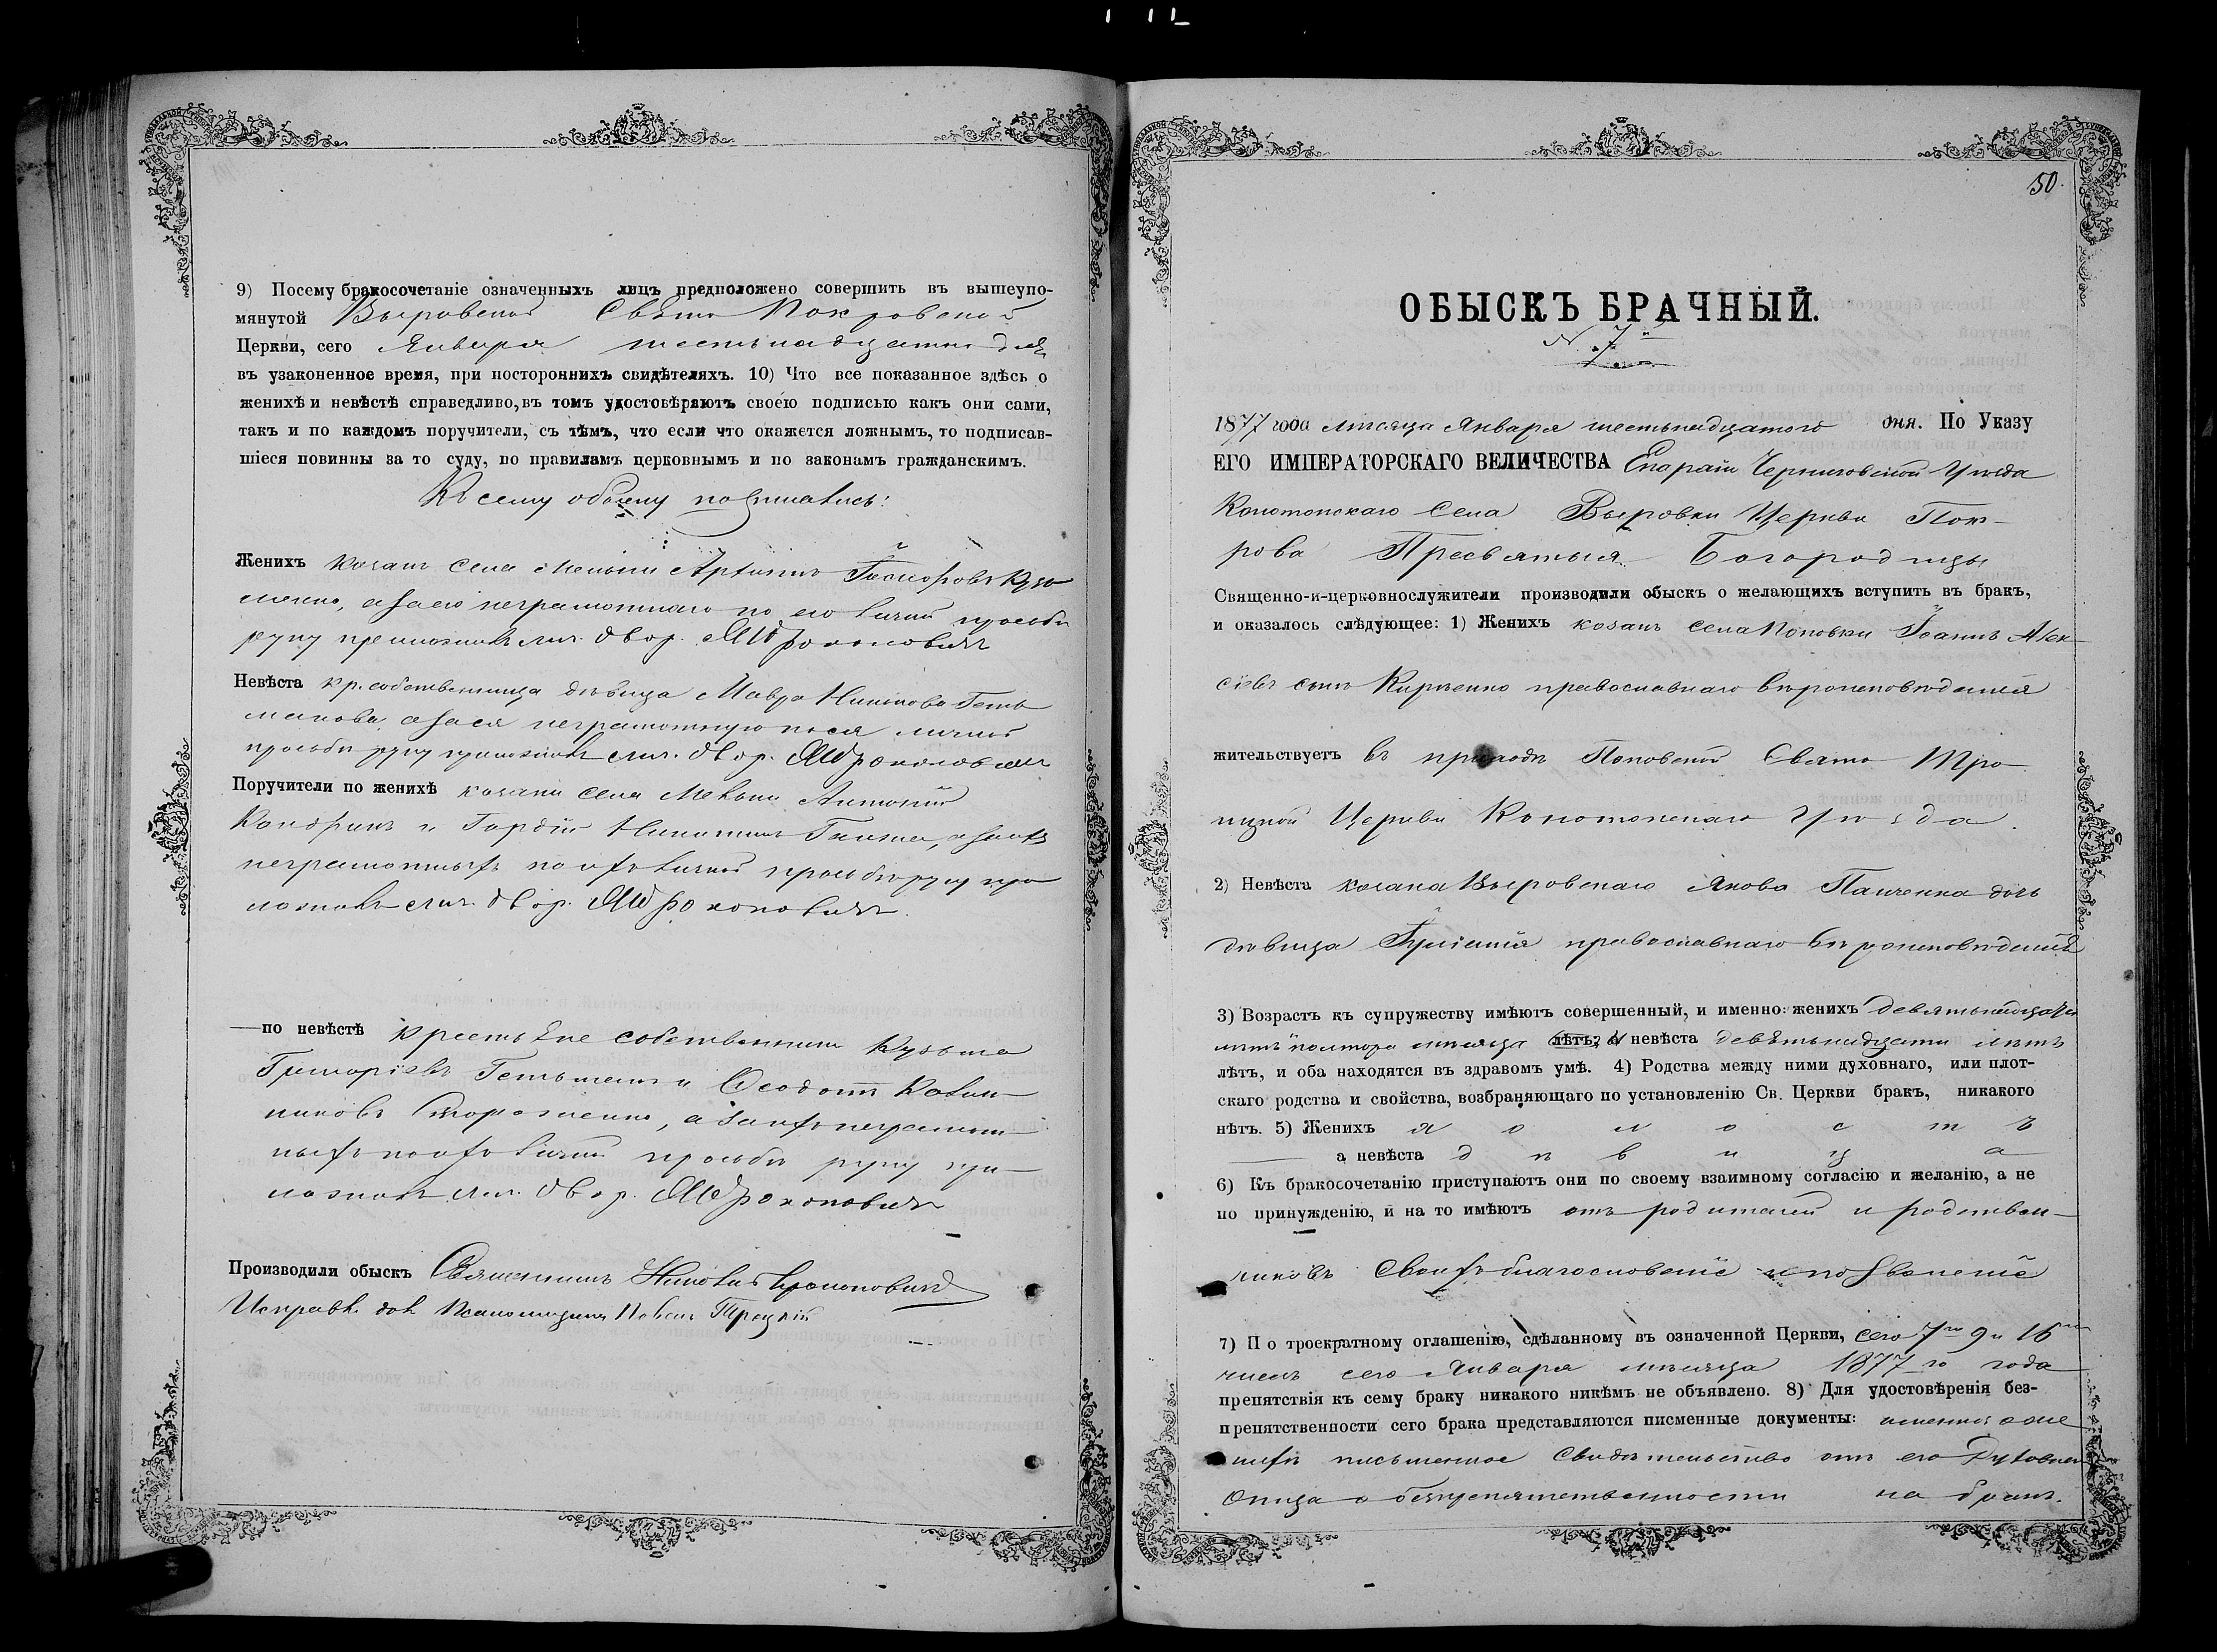 9) Посему бракосочетаніе означенныхъ лицъ предположено совершить въ вышеупо-
мянутой Выровской Свято Покровской
Церкви, сего Января шестьнадцатаго дня
въ узаконенное время, при постороннихъ свидѣтеляхъ. 10) Что все показанное здѣсь о
женихѣ и невѣстѣ справедливо, въ томъ удостовѣряютъ своею подписью какъ они сами,
такъ и по каждомъ поручители, съ тѣмъ, что если что окажется ложнымъ, то подписав-
шіеся повинны за то суду, по правиламъ церковнымъ и по законамъ гражданскимъ.
Къ сему обыску подписались:
Женихъ козакъ села
а за его неграмотнаго по его личной просьбѣ
руку приложилъ двор.
Невѣста кр. собственница дѣвица Мавра
а за ея неграмотную по ея личной
просьбѣ руку приложилъ двор.
Поручители по женихѣ козаки села Антоній
и Гордій
неграмотныхъ по ихъ личной просьбѣ руку при
ложилъ двор.
— по невѣстѣ крестьяне собственники Кузьма
Григоріевъ и Ѳеодотъ
а за ихъ неграмот
ныхъ по ихъ личной просьбѣ руку при
ложилъ двор.
Производили обыскъ Священникъ Николай Прокоповичъ
Исправл. дол. Псаломщика Павелъ Троцкій
50.
ОБЫСКЪ БРАЧНЫЙ.
№ 7й
1877 года мѣсяца Января шестьнадцатого дня. По Указу
ЕГО ИМПЕРАТОРСКАГО ВЕЛИЧЕСТВА Епархіи Черниговской Уѣзда
Конотопскаго Села Выровки Церкви Пок-
рова Пресвятыя Богородицы
Священно-и-церковнослужители производили обыскъ о желающихъ вступить въ бракъ,
и оказалось слѣдующее: 1) Женихъ козакъ села Поповки Іоаннъ Алек
сіевъ сынъ Кириенко православнаго вѣроисповѣданія
жительствуетъ въ приходѣ Поповской Свято Тро
ицкой Церкви Конотопскаго Уѣзда.
2) Невѣста козака Выровскаго Якова Пащенка дочь
дѣвица Іуліанія православнаго вѣроисповѣданія
3) Возрастъ къ супружеству имѣютъ совершенный, и именно: женихъ девятьнадцати
лѣтъ полтора мѣсяца лѣтъ, а невѣста девятьнадцати лѣтъ
лѣтъ, и оба находятся въ здравомъ умѣ. 4) Родства между ними духовнаго, или плот-
скаго родства и свойства, возбраняющаго по установленію Св. Церкви бракъ, никакого
нѣтъ. 5) Женихъ холостъ
а невѣста дѣвица
6) Къ бракосочетанію приступаютъ они по своему взаимному согласію и желанію, а не
по принужденію, и на то имѣютъ отъ родителей и родствен-
никовъ своихъ благословеніе и позволеніе
7) По троекратному оглашенію, сдѣланному въ означенной Церкви, сего 7го 9 и 16го
числъ сего Января мѣсяца 1877го года
препятствія къ сему браку никакого никѣмъ не объявлено. 8) Для удостовѣренія без-
препятственности сего брака представляются писменные документы: именно о же
нихѣ письменное свидѣтельство отъ его Духовнаго
Отца о безпрепятственности на бракъ.